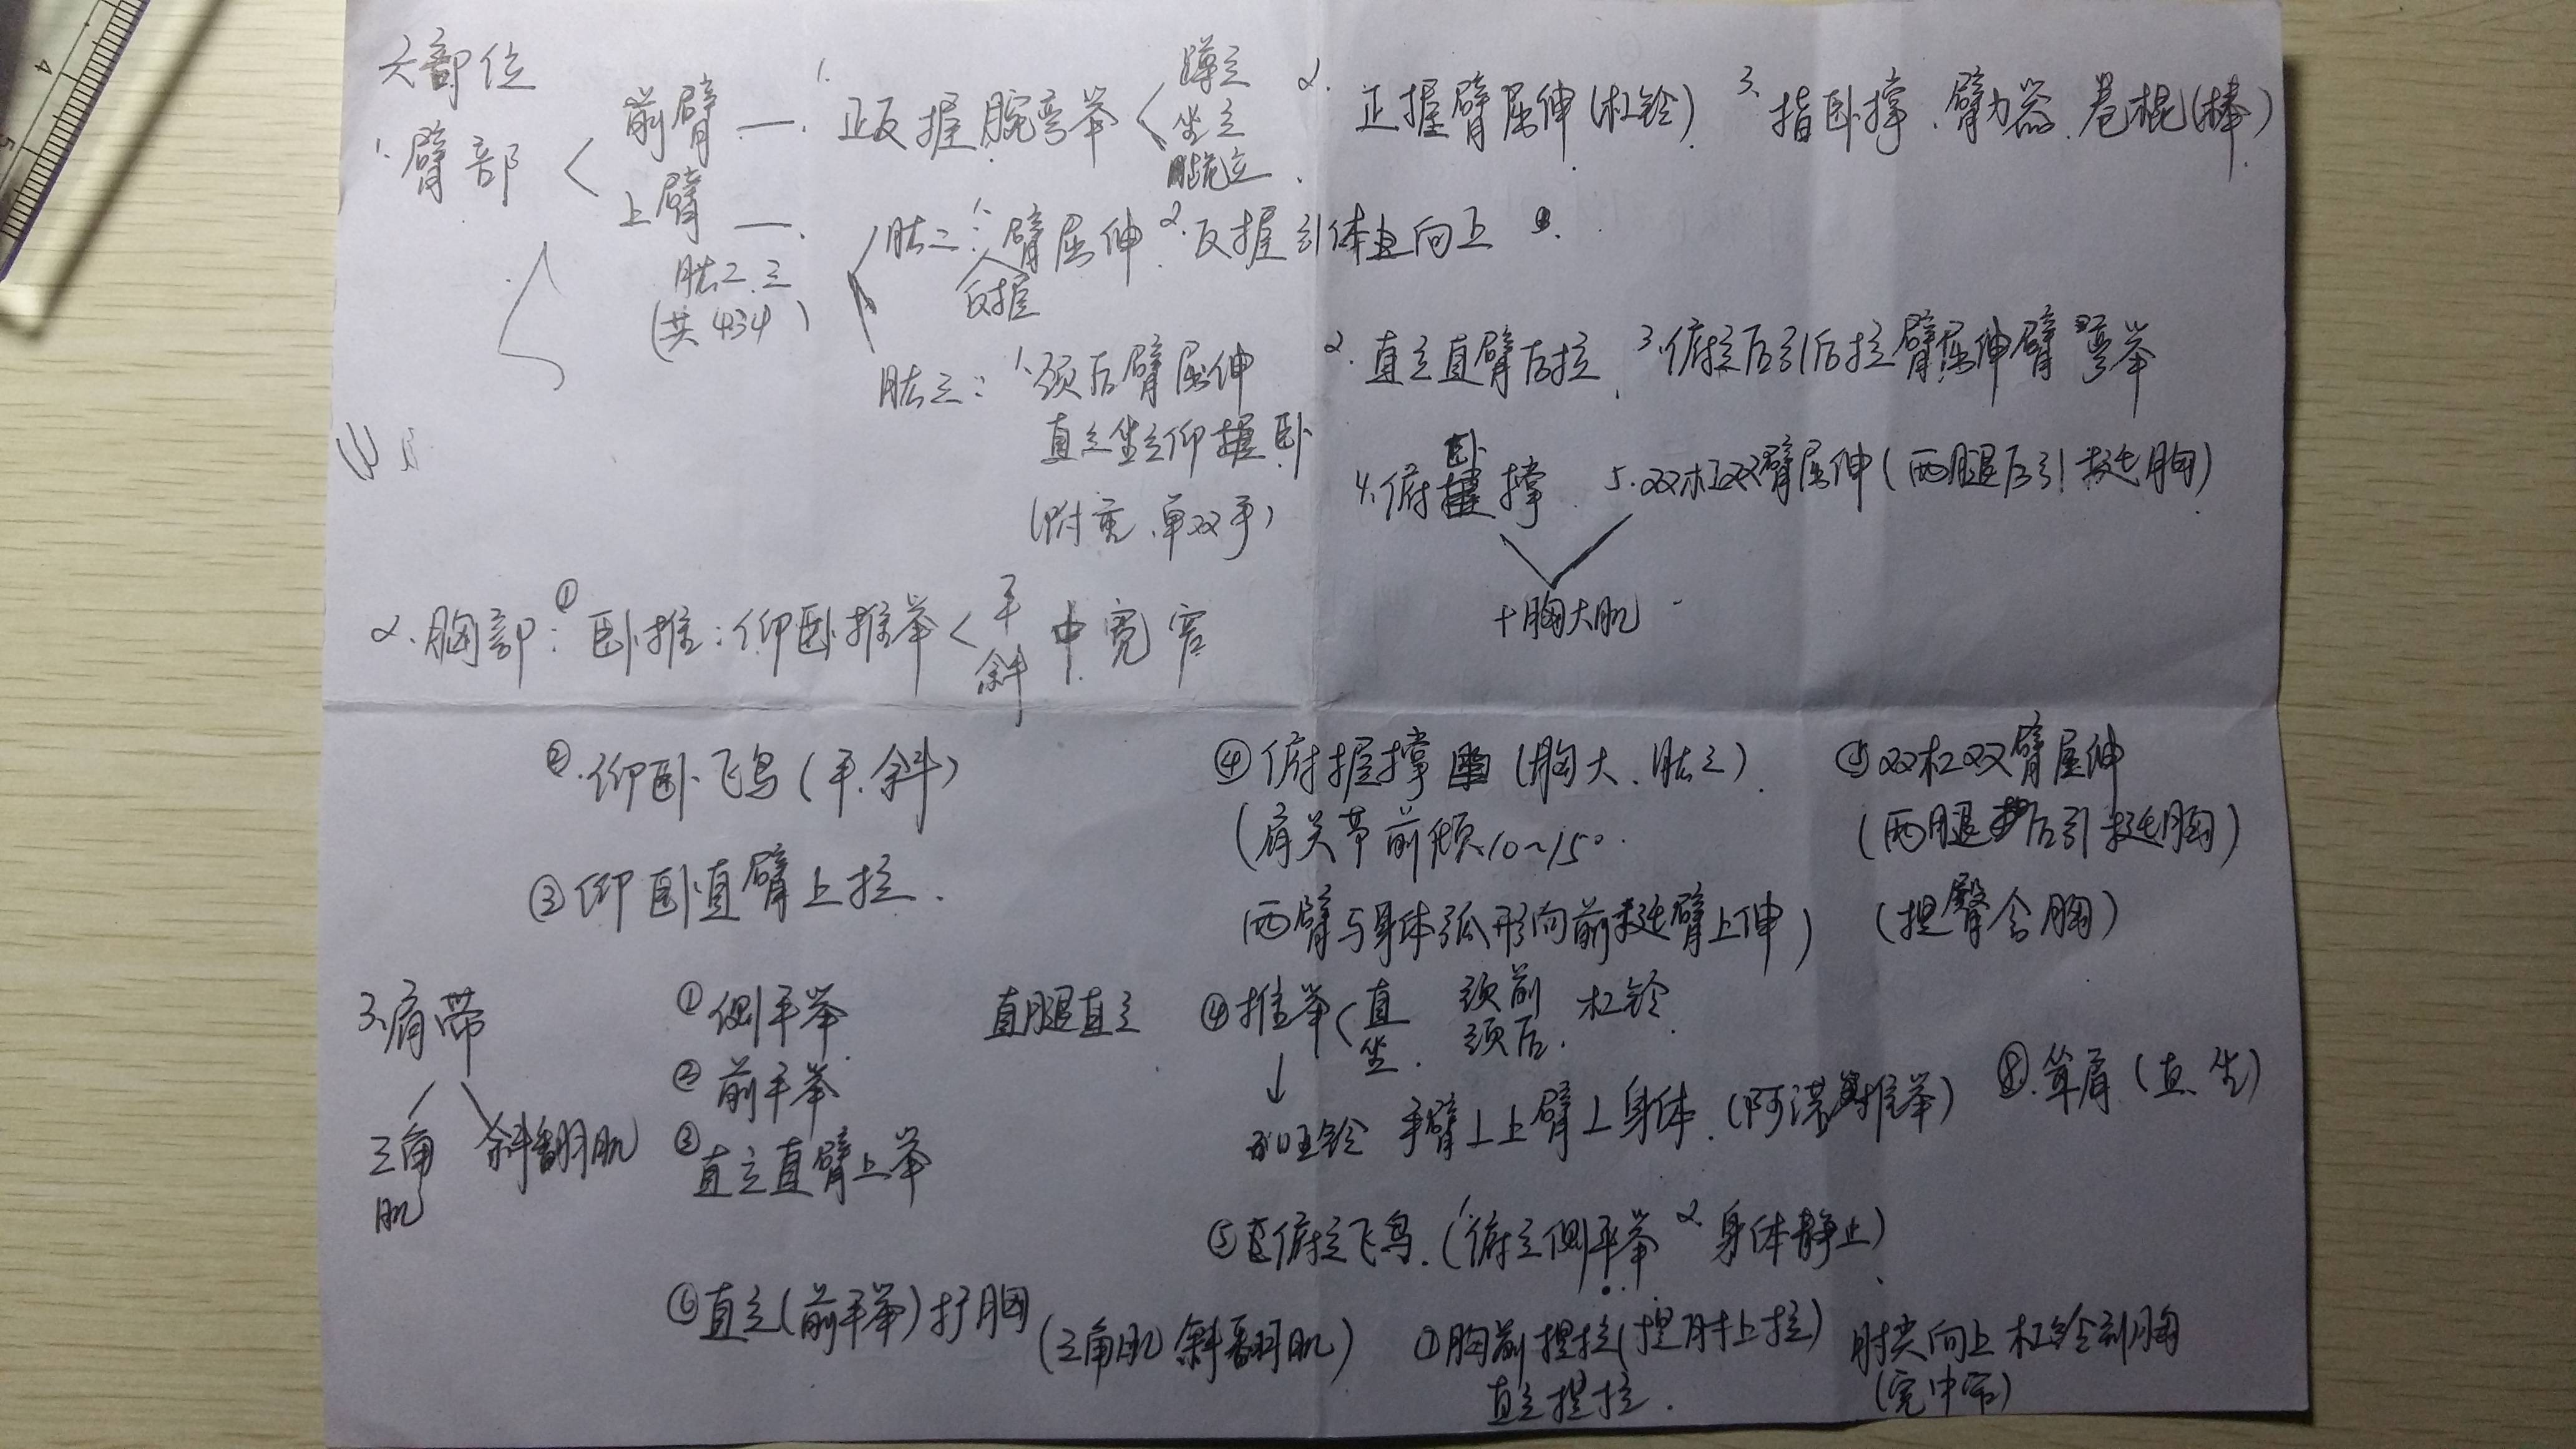 六部位
1. 臂部 < 前臂 — 1. 正反握腕弯举 < 蹲立 坐立 跪立. 2. 正握臂屈伸(杠铃). 3. 指卧撑、臂力器、卷棍(棒).
上臂 —. 肱二: 1. 臂屈伸. 2. 反握引体向上
反握
肱二、三
(共434)
肱三: 1. 颈后臂屈伸 2. 直立直臂后拉. 3. 俯立后引后拉臂屈伸臂弯举
直立坐立仰卧
(附重、单双手)
4. 俯卧撑. 5. 双杠双臂屈伸(两腿后引挺胸).
+胸大肌
2. 胸部: ① 卧推: 仰卧推举 < 平 斜 中宽窄
②. 仰卧飞鸟(平.斜)
③ 仰卧直臂上拉.
④ 俯握撑 (胸大、肱三).
(肩关节前倾10~15°.
两臂与身体弧形向前挺臂上伸)
⑤ 双杠双臂屈伸
(两腿后引挺胸)
(提臀含胸)
3. 肩带
三角肌 斜翻肌
① 侧平举
② 前平举
③ 直立直臂上举
直腿直立
④ 推举 < 直 坐. 颈前 颈后. 杠铃.
↓
铃 手臂⊥上臂⊥身体. (阿诺推举)
⑧. 耸肩(直.坐)
⑤ 俯立飞鸟. (1. 俯立侧平举 2. 身体静止)
⑥ 直立(前平举)扩胸
(三角肌 斜翻肌)
⑦ 胸前提拉(提肘上拉) 肘尖向上 杠铃到胸
直立提拉. (宽中窄)